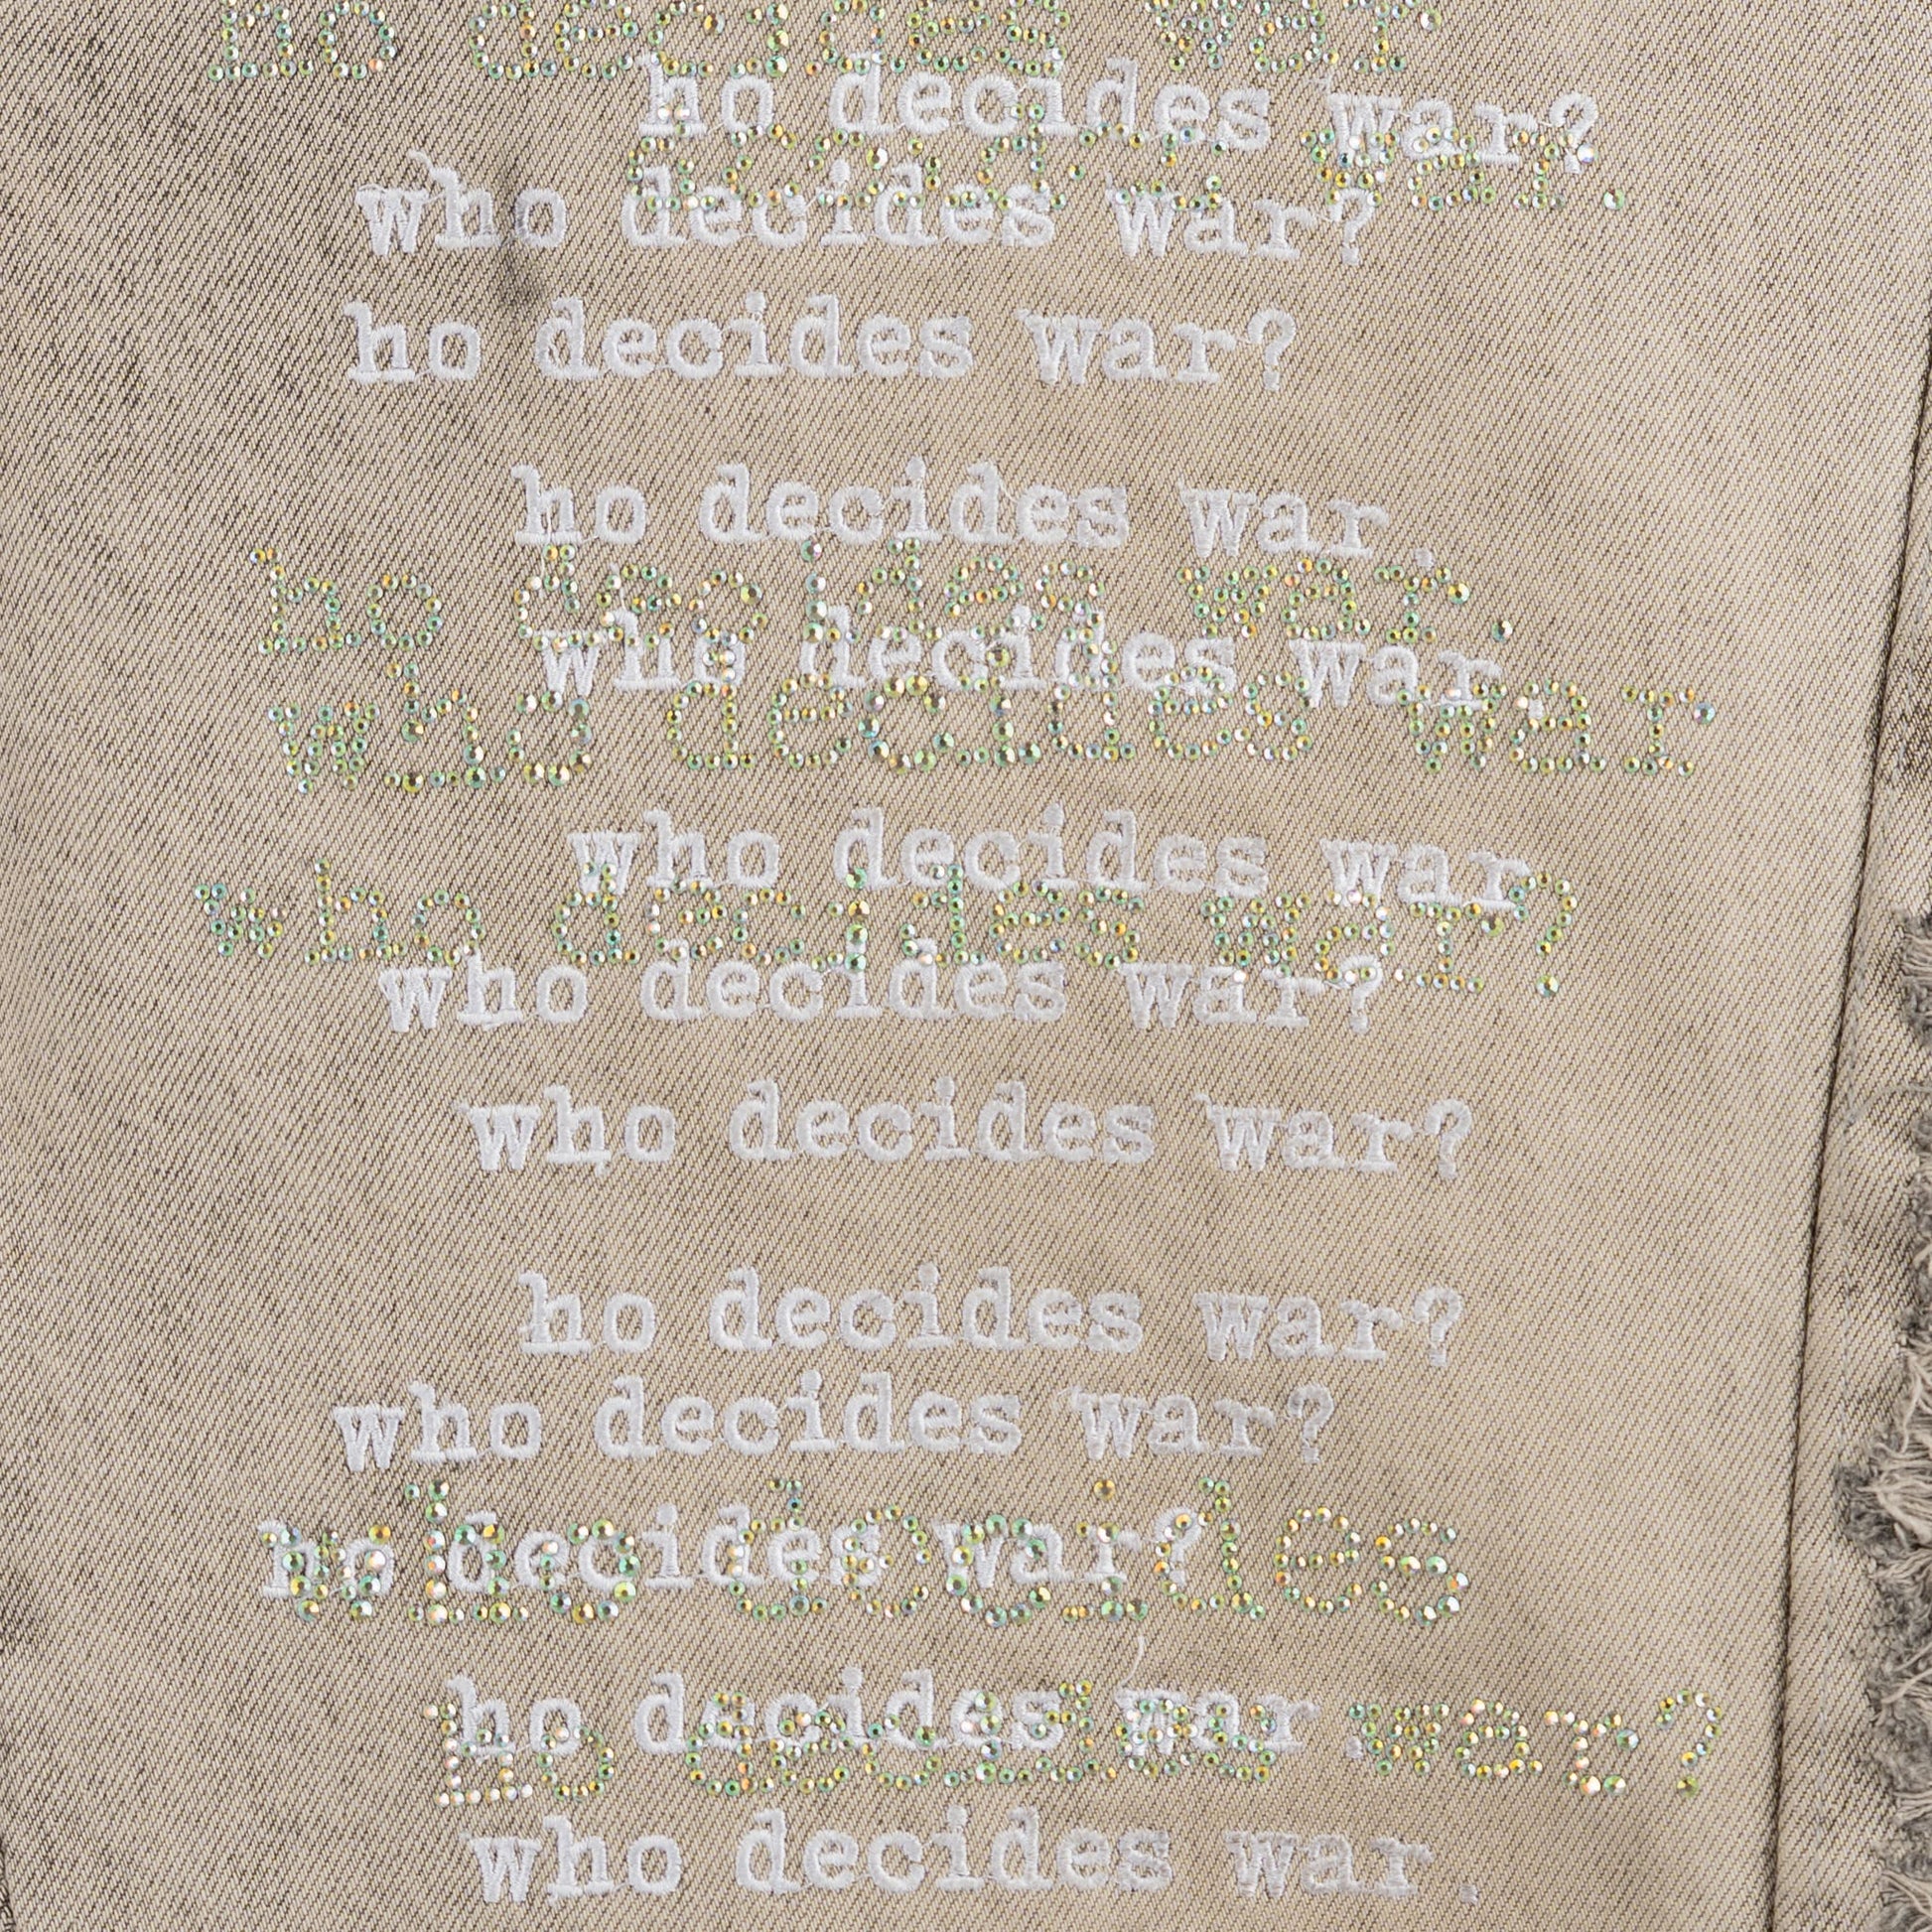 ho decides war
ho decides war?
decides war.
who decides war?
ho decides war?
ho decides war.
ho decides war.
who decides war.
who decides war
who decides war
who decides war?
who decides war?
who decides war?
ho decides war?
who decides war?
ho decides war?
who decides
ho decides war.
ho decides war?
who decides war.